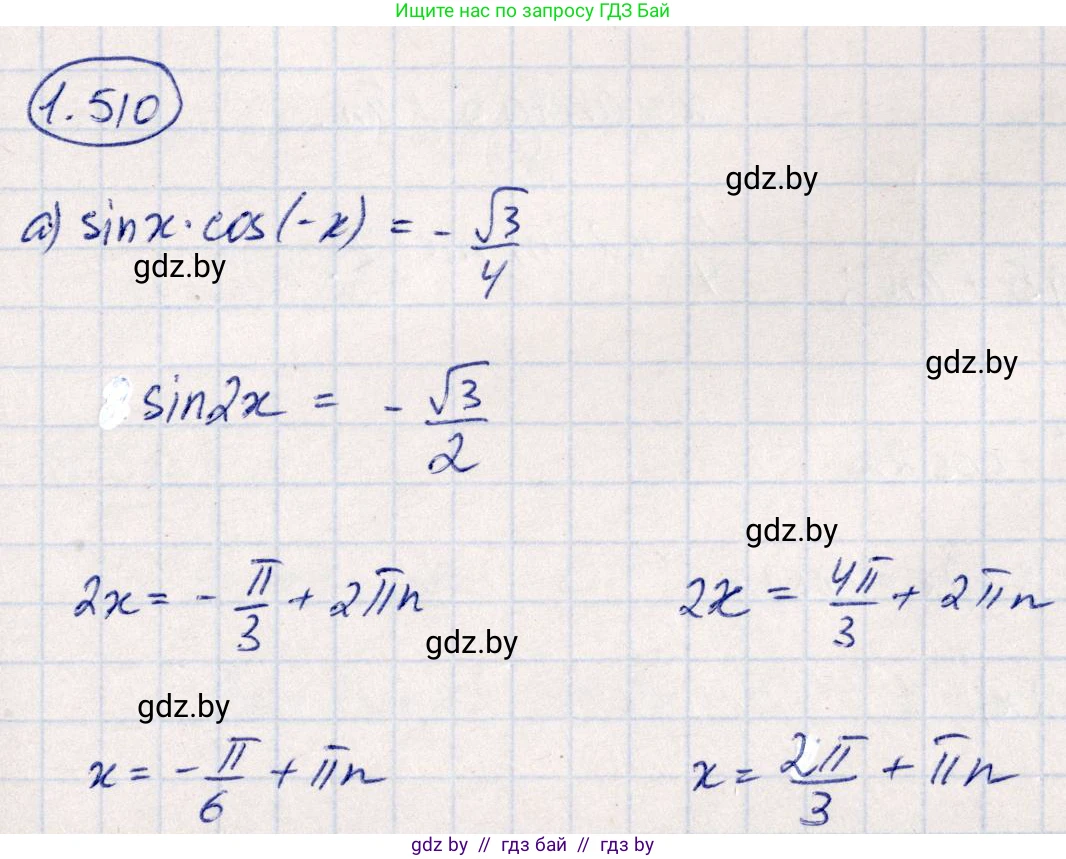 Ищите нас по запросу ГДЗ Бай
1.510
gdz.by
а) sinx·cos(-x) = - √3/4
gdz.by
gdz.by
sin2x = - √3/2
gdz.by
2x = - π/3 + 2πn 2x = 4π/3 + 2πn
gdz.by
gdz.by
x = - π/6 + πn x = 2π/3 + πn
gdz.by // гдз бай // гдз by